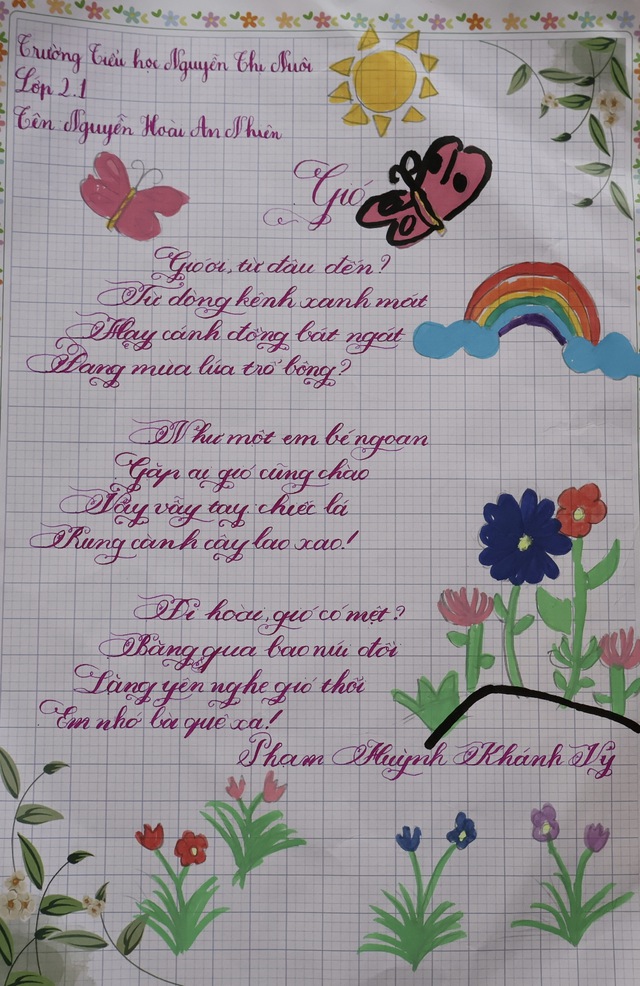 Trường Tiểu học Nguyễn Thị Nuôi
Lớp 2.1
Tên: Nguyễn Hoài An Nhiên
Gió
Gió ơi, từ đâu đến?
Từ dòng kênh xanh mát
Hay cánh đồng bát ngát
Đang mùa lúa trổ bông?
Như một em bé ngoan
Gặp ai gió cũng chào
Vẫy vẫy tay chiếc lá
Rung cành cây lao xao!
Đi hoài, gió có mệt?
Băng qua bao núi đồi
Lặng yên nghe gió thổi
Em nhớ bà quê xa!
Phạm Huỳnh Khánh Vy